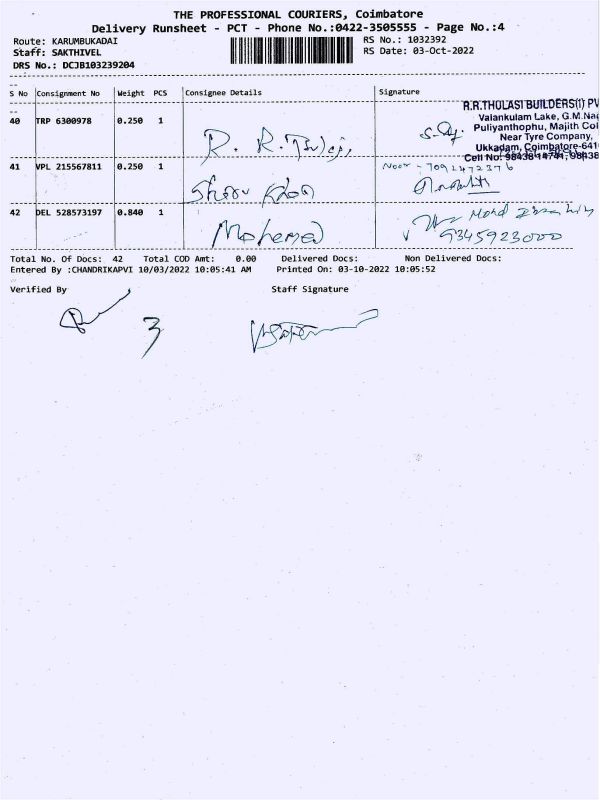 THE PROFESSIONAL COURIERS, Coimbatore
Delivery Runsheet - PCT - Phone No.:0422-3505555 - Page No.:4
Route: KARUMBUKADAI RS No.: 1032392
Staff: SAKTHIVEL RS Date: 03-Oct-2022
DRS No.: DCJB103239204
S No Consignment No Weight PCS Consignee Details Signature
R.R.THULASI BUILDERS(I) PV
Valankulam Lake, G.M.Nag
40 TRP 6300978 0.250 1 Puliyanthophu, Majith Col
R. R. Near Tyre Company,
Ukkadam, Coimbatore-641
Cell No: 98438
41 VPL 215567811 0.250 1 Noor - 7092472376
42 DEL 528573197 0.840 1 Mohd
Mohemed 9345923000
Total No. Of Docs: 42 Total COD Amt: 0.00 Delivered Docs: Non Delivered Docs:
Entered By :CHANDRIKAPVI 10/03/2022 10:05:41 AM Printed On: 03-10-2022 10:05:52
Verified By Staff Signature
3